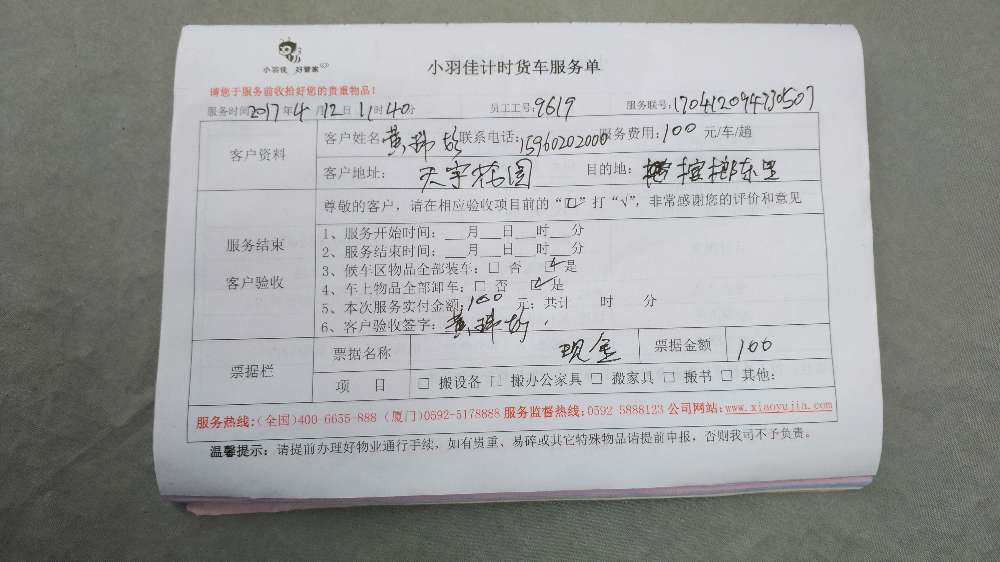 小羽佳 好管家
小羽佳计时货车服务单
请您于服务前收拾好您的贵重物品!
服务时间2017年4月12日11时40分 员工工号:9619 服务联号:170412094730507
客户资料
客户姓名:黄 联系电话:15960202000服务费用:100 元/车/趟
客户地址: 天宇花园 目的地: 槟榔东里
尊敬的客户,请在相应验收项目前的“口”打“√”,非常感谢您的评价和意见
服务结束
客户验收
1、服务开始时间:___月___日___时___分
2、服务结束时间:___月___日___时___分
3、候车区物品全部装车:□ 否 ☑是
4、车上物品全部卸车:□ 否 ☑是
5、本次服务实付金额:100 元;共计 时 分
6、客户验收签字:黄
票据栏
票据名称 现金 票据金额 100
项 目 □ 搬设备 □ 搬办公家具 □ 搬家具 □ 搬书 □ 其他:
服务热线:(全国)400-6655-888 (厦门)0592-5178888 服务监督热线:0592 5888123 公司网站:www.xiaoyujia.com
温馨提示:请提前办理好物业通行手续,如有贵重、易碎或其它特殊物品请提前申报,否则我司不予负责。